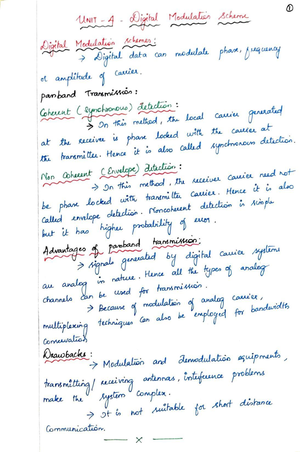 ①
UNIT - 4 - Digital Modulation Scheme
Digital Modulation schemes:
→ Digital data can modulate phase, frequency
or amplitude of carrier.
passband Transmission:
Coherent (Synchronous) detection:
→ In this method, the local carrier generated
at the receiver is phase locked with the carrier at
the transmitter. Hence it is also called synchronous detection.
Non Coherent (Envelope) detection:
→ In this method, the receiver carrier need not
be phase locked with transmitter carrier. Hence it is also
called envelope detection. Noncoherent detection is simple
but it has higher probability of error.
Advantages of passband transmission:
→ signals generated by digital carrier systems
are analog in nature. Hence all the types of analog
channels can be used for transmission.
→ Because of modulation of analog carrier,
multiplexing techniques can also be employed for bandwidth
conservation
Drawbacks:
→ Modulation and demodulation equipments,
transmitting/receiving antennas, inteference problems
make the system complex.
→ It is not suitable for short distance
Communication.
x